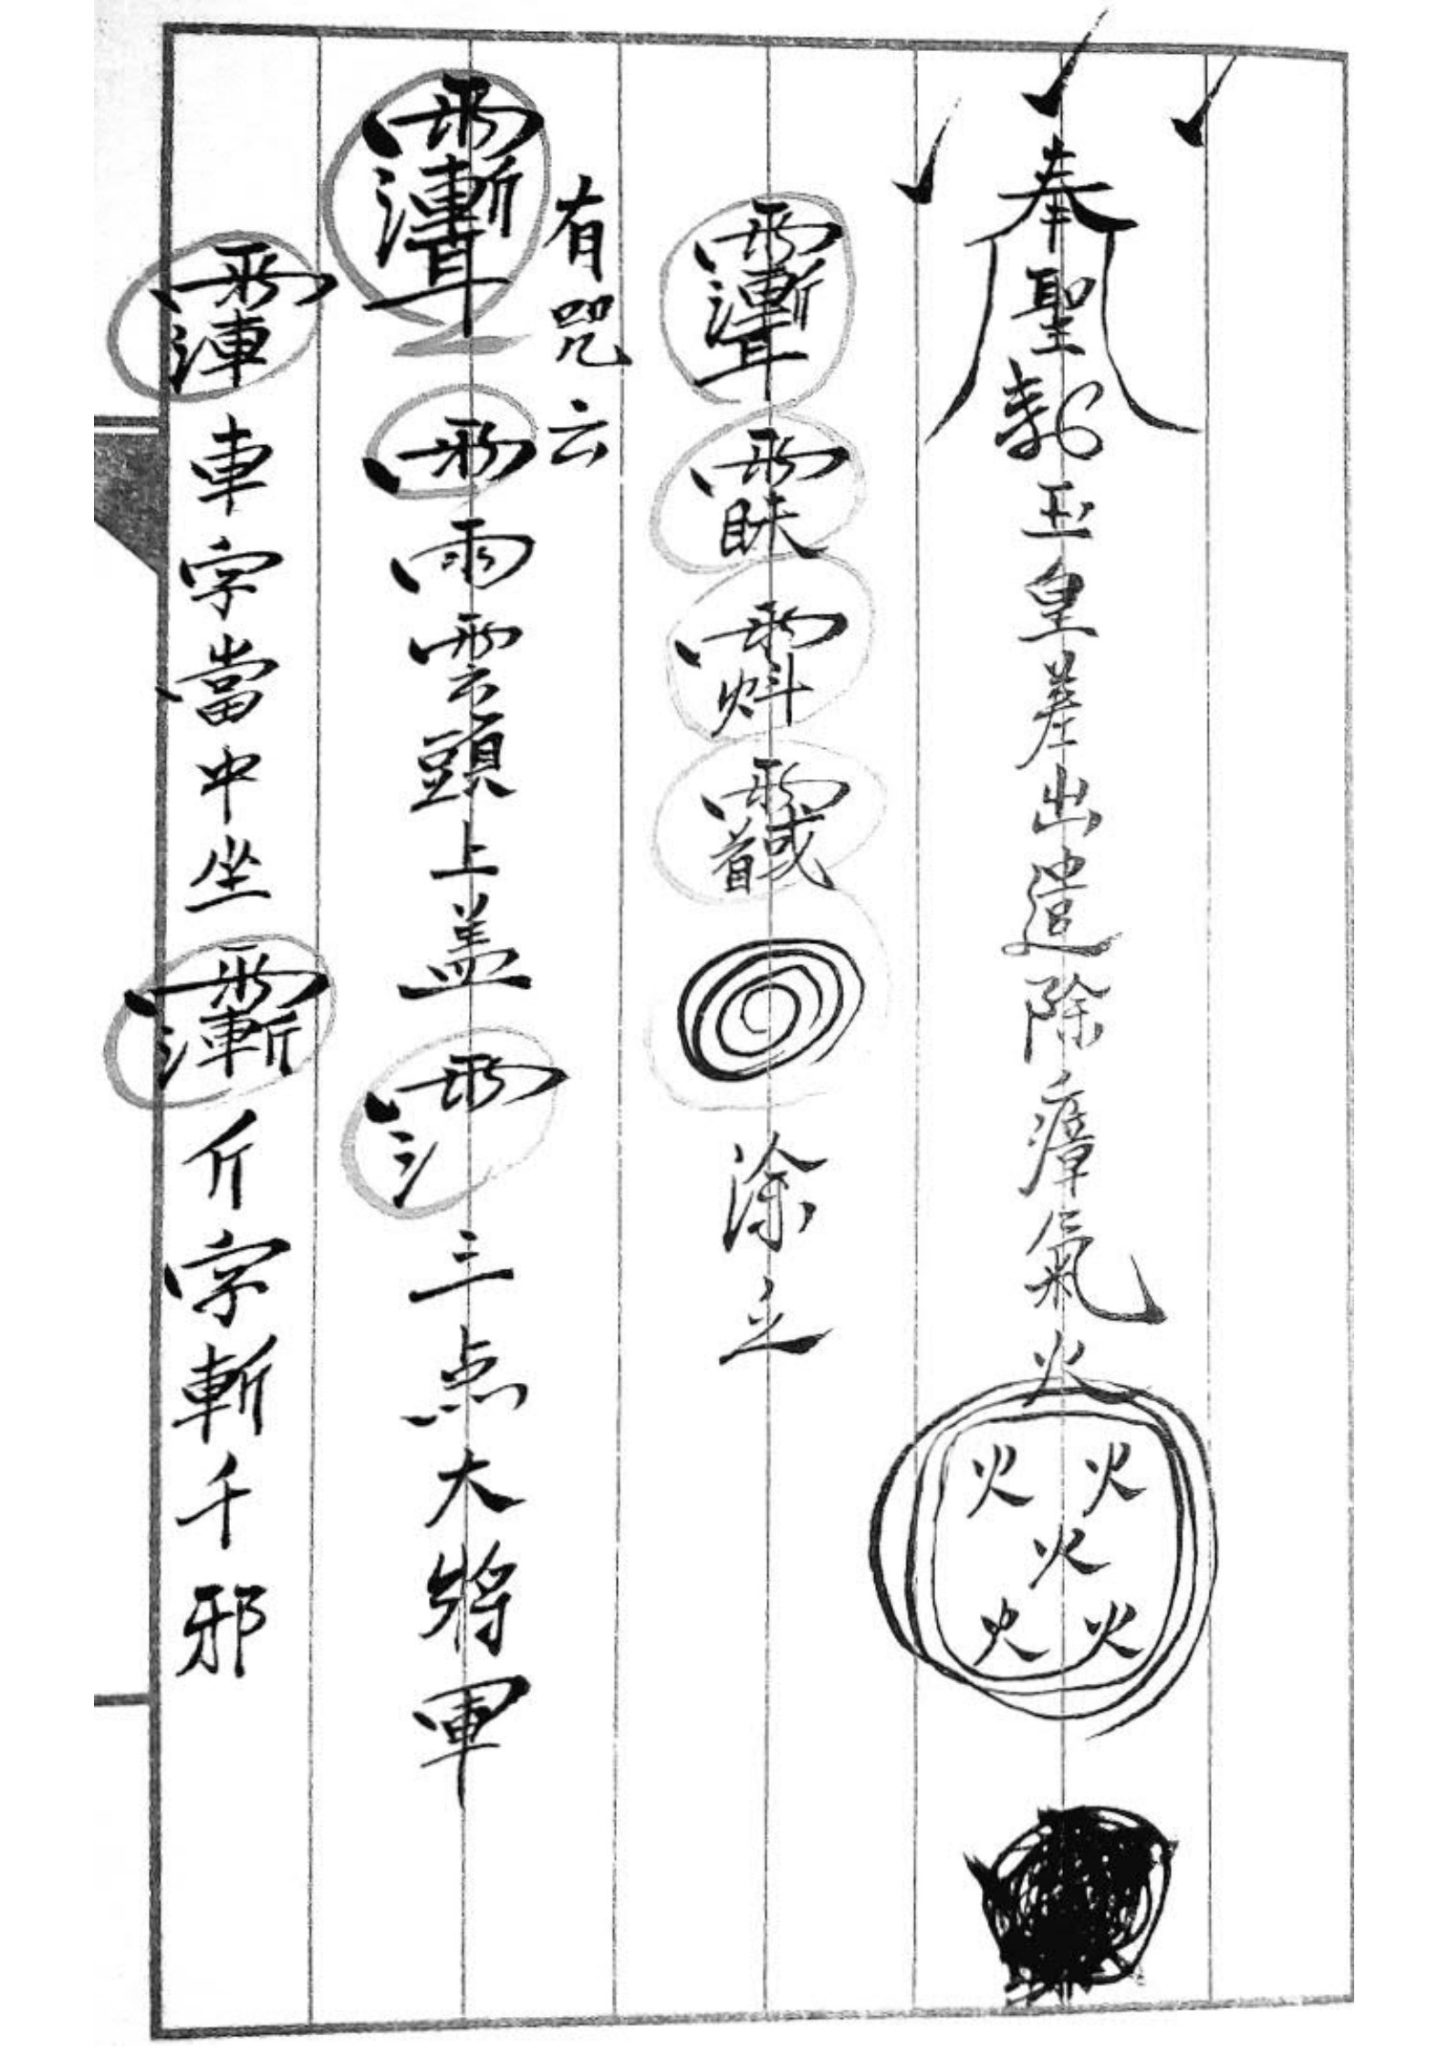 奉聖勅玉皇差出遣除瘴氣火
火火
火
火火
涂之
有咒云
雨雨雲頭上盖三点大將軍
車字當中坐斤字斬千邪